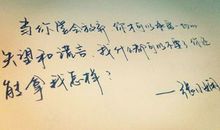 当你学会放弃 你不可以承受一切的
失望和谎言。我什么都可以不要，你还
能拿我怎样？
——张小娴